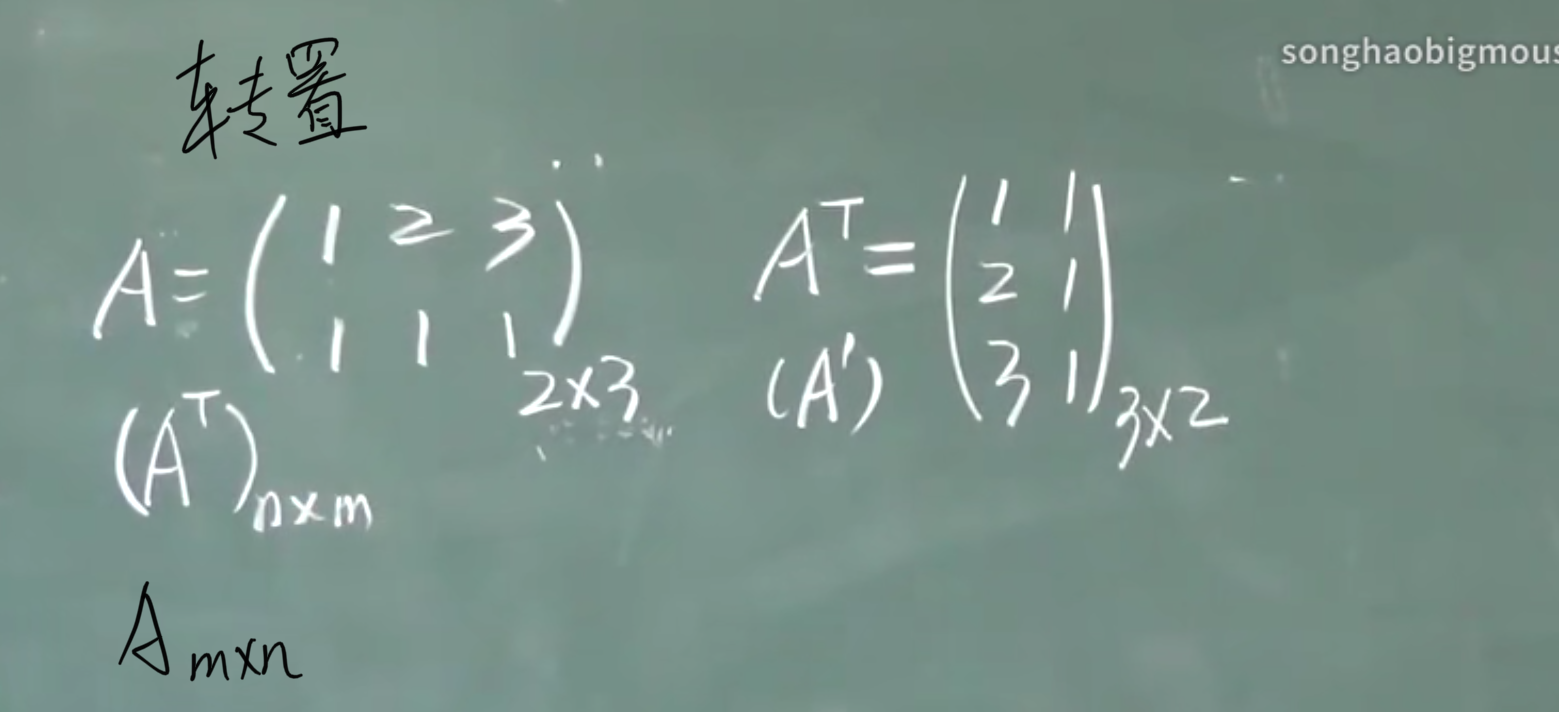 songhaobigmous
转置
A = ( 1 2 3
1 1 1 ) 2×3
Aᵀ = ( 1 1
2 1
3 1 ) 3×2
(A')
(Aᵀ) n×m
A m×n